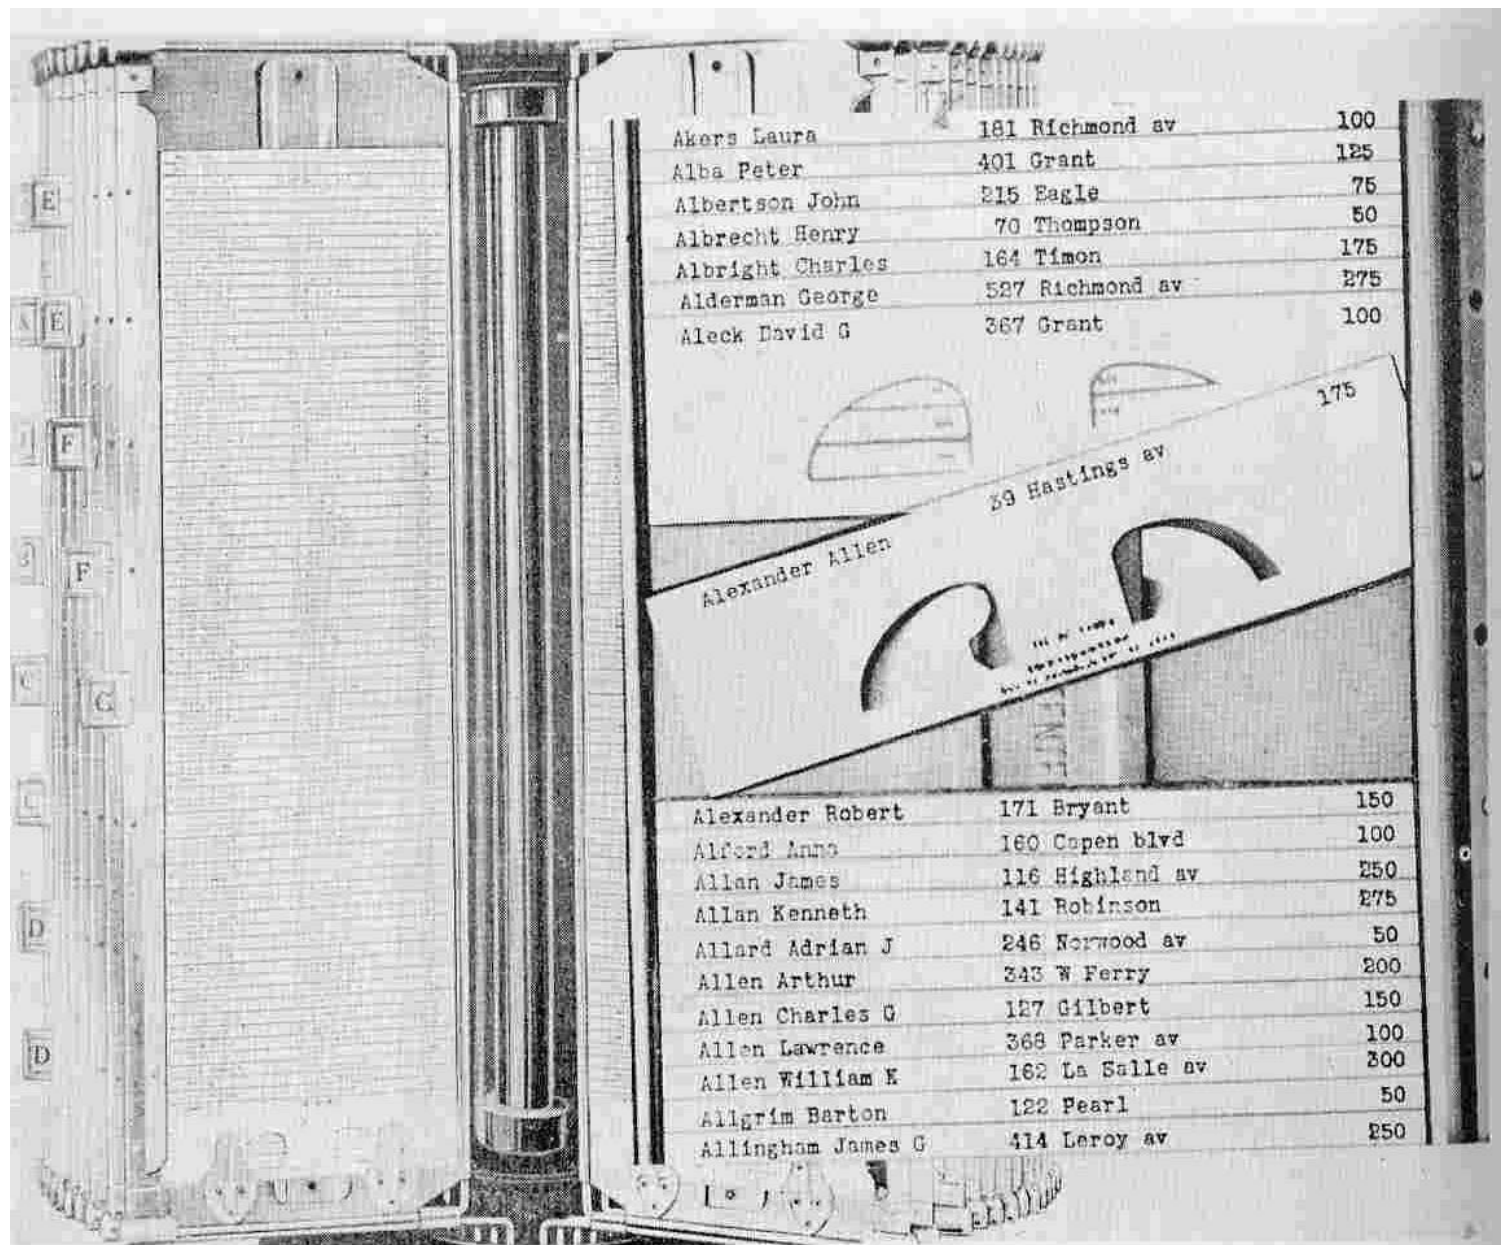 Akers Laura 181 Richmond av 100
Alba Peter 401 Grant 125
Albertson John 215 Eagle 75
Albrecht Henry 70 Thompson 50
Albright Charles 164 Timon 175
Alderman George 527 Richmond av 275
Aleck David G 367 Grant 100
Alexander Allen 39 Hastings av 175
Alexander Robert 171 Bryant 150
Alford Anna 160 Capen blvd 100
Allan James 116 Highland av 250
Allan Kenneth 141 Robinson 275
Allard Adrian J 246 Norwood av 50
Allen Arthur 343 W Ferry 200
Allen Charles G 127 Gilbert 150
Allen Lawrence 368 Parker av 100
Allen William K 162 La Salle av 300
Allgrim Barton 122 Pearl 50
Allingham James G 414 Leroy av 250
E
E
F
F
G
D
D